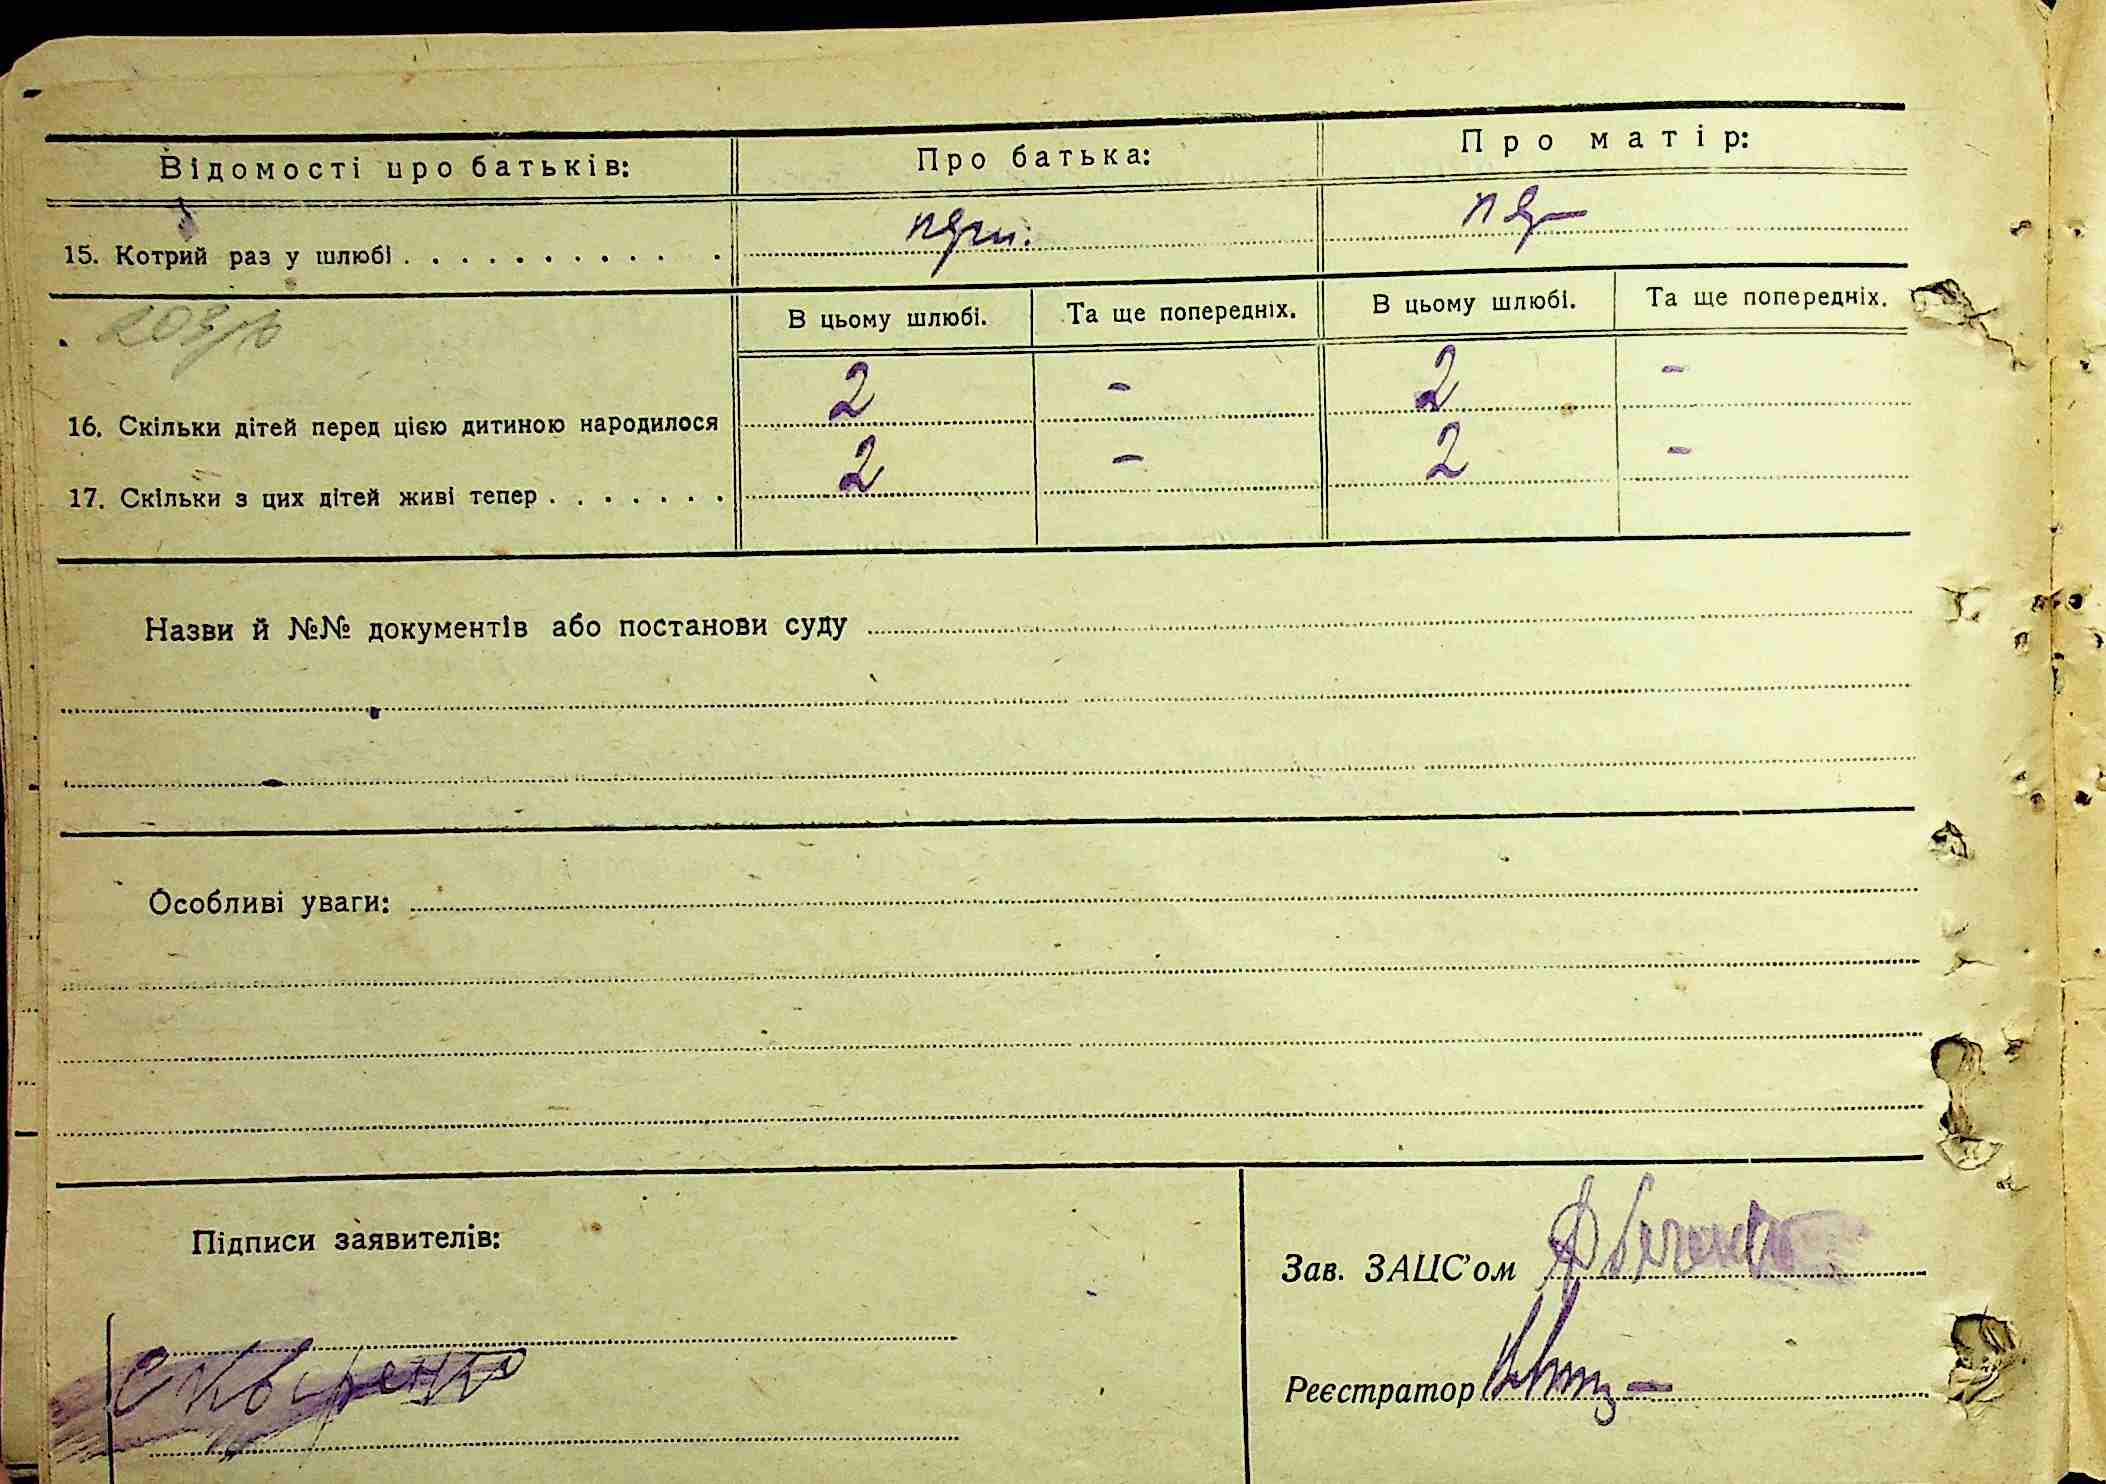 Відомості про батьків:
Про батька:
Про матір:
15. Котрий раз у шлюбі . . . . . . . . . . . .
В цьому шлюбі.
Та ще попередніх.
В цьому шлюбі.
Та ще попередніх.
16. Скільки дітей перед цією дитиною народилося
2 - 2 -
17. Скільки з цих дітей живі тепер . . . . . . .
2 - 2 -
Назви й №№ документів або постанови суду
Особливі уваги:
Підписи заявителів:
Зав. ЗАЦС’ом
Реєстратор